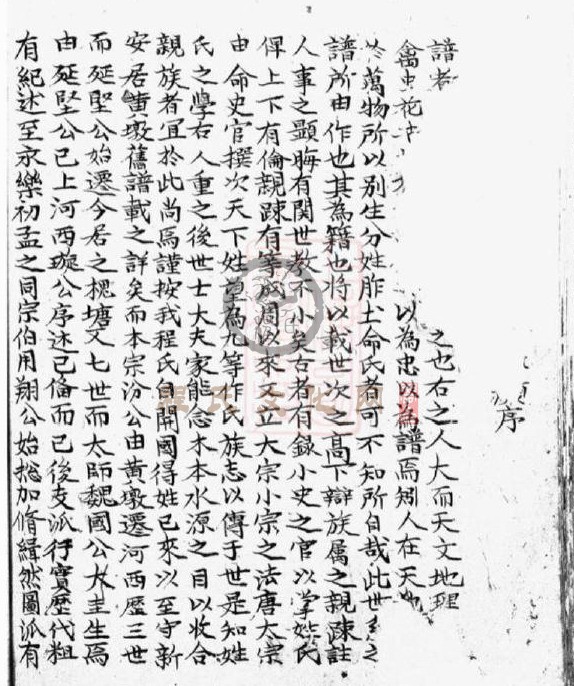 序
譜者 之也古之人大而天文地理
禽虫花 以為忠以為譜焉矧人在天
萬物所以別生分姓胙土命氏者可不知所自哉此世系之
譜所由作也其為籍也將以載世次之高下辯族属之親踈註
人事之顯晦有関世教不小矣古者有録小史之官以掌姓氏
俾上下有倫親踈有等成周以來又立大宗小宗之法唐太宗
由命史官撰次天下姓望為九等作氏族志以傳于世是知姓
氏之學古人重之後世士大夫家能念木本水源之目以收合
親族者宜於此尚焉謹按我程氏自開國得姓已來以至守新
安居黄墩舊譜載之詳矣而本宗汾公由黄墩遷河西歷三世
而延堅公始遷今居之槐塘又七世而太師魏國公大圭生焉
由延堅公已上河西璇公序述已俻而已後支派行實歷代粗
有紀述至永樂初孟之同宗伯用翔公始總加脩緝然圖派有